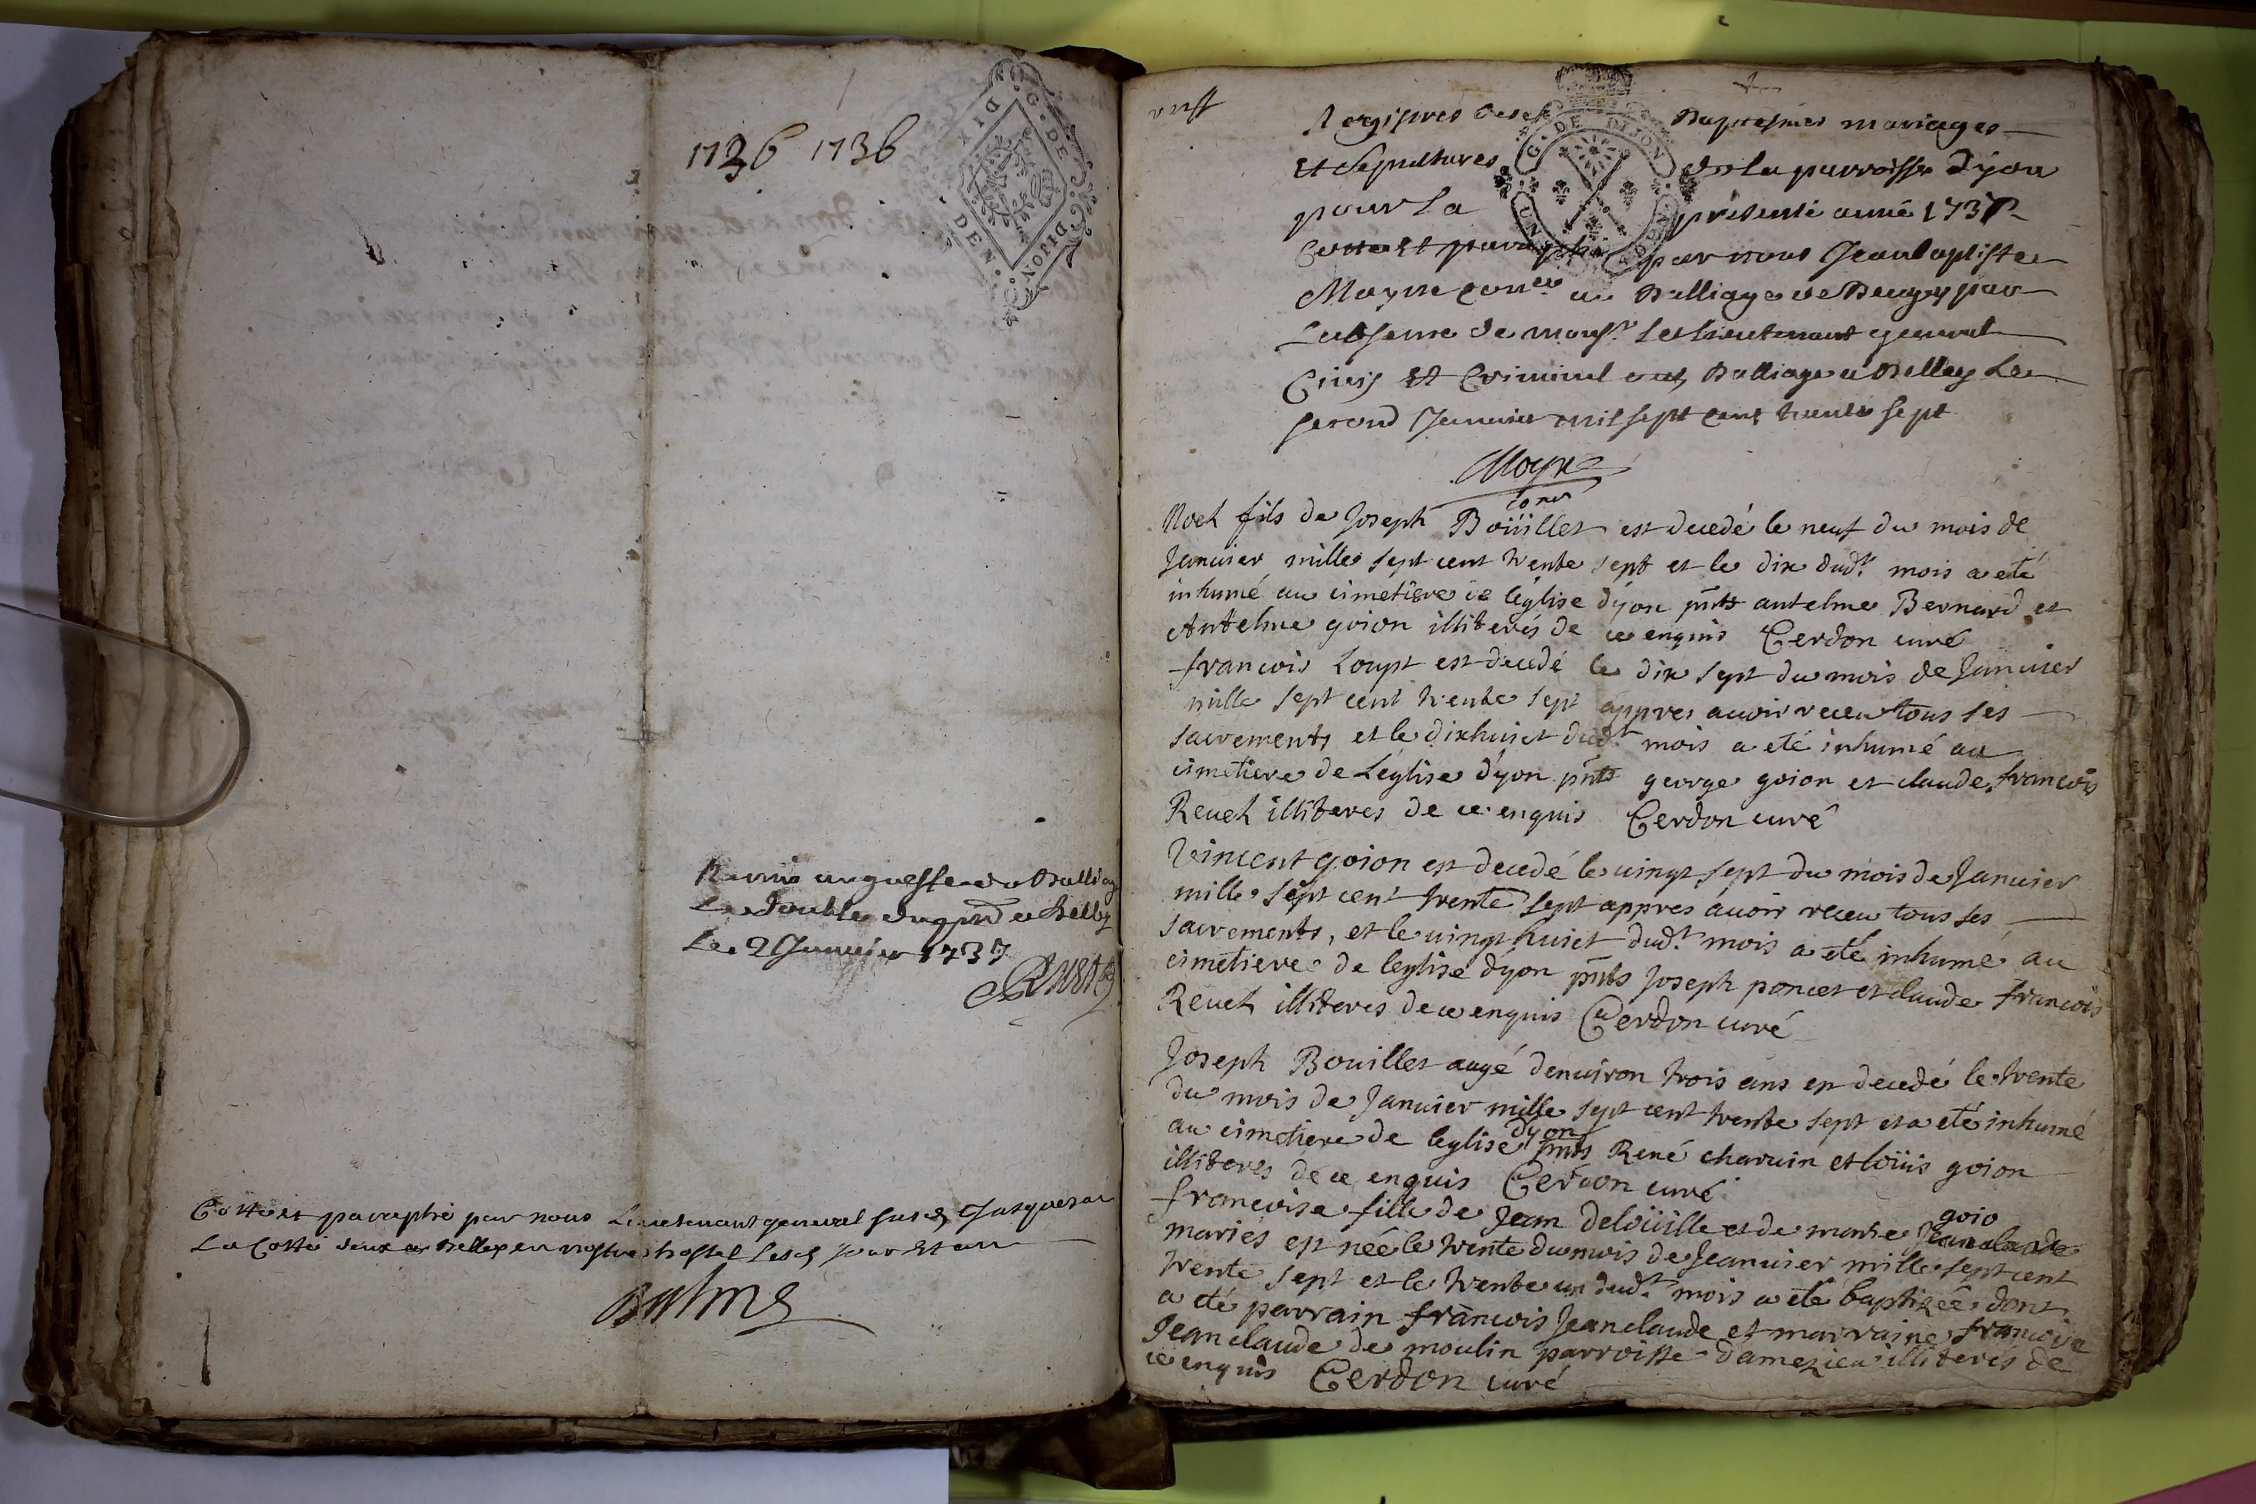 1736 1736
G. DE DIJON
DIX DEN.
Remis au greffe du Balliage
Le double du pnt a Belley
Le 2 Janvier 1737
Cotté et paraphé par nous Lieutenant general susd. jusques a
La Cotte deux a Belley en nostre hostel Lesd. jour et an
Balme
Registres des Baptesmes mariages
Et Sepultures de La parroisse dyon
pour La presente année 1737
Cotté Et paraphé par nous Jean baptiste
Moyne coner au Balliage de Beugey par
Labsence de monsr. Le Lieutenant general
Civil Et Criminel aud. Balliage a Belley Le
second Janvier mil sept cent trente sept
G. DE DIJON
Moyne
coner
Noel fils de Joseph Boüillet est decedé le neuf du mois de
Januier mille sept cent trente sept et le dix dudt. mois a eté
inhumé au cimetiere de léglise dyon pnts antelme Bernard et
Antelme goion illiterés de ce enquis Cerdon curé
francois Loupt est decedé le dix sept du mois de Januier
mille sept cent trente sept appres auoir receu tous ses
sacrements et le dixhuict dudt. mois a eté inhumé au
cimetiere de Léglise dyon pnts george goion et claude francois
Reuel illiteres de ce enquis Cerdon curé
Vincent goion est decedé le uingt sept du mois de Januier
mille sept cent trente sept appres auoir receu tous ses
sacrements, et le uingt huict dudt. mois a eté inhumé au
cimetiere de leglise dyon pnts Joseph poncet et claude francois
Reuel illiteres de ce enquis Cerdon curé
Joseph Bouillet aagé denuiron trois ans est decedé le trente
du mois de Januier mille sept cent trente sept et a eté inhumé
au cimetiere de leglise dyon pnts René charuin et loüis goion
illiteres de ce enquis Cerdon curé
francoise fille de Jean deloüille et de marie Jeanclaude goio
mariés est née le trente du mois de Jeanuier mille sept cent
trente sept et le trente un dudt. mois a eté baptizée dont
a eté parrain francois Jeanclaude et marraine francoise
Jeanclaude de moulin parroisse damezieu illiterés de
ce enquis Cerdon curé